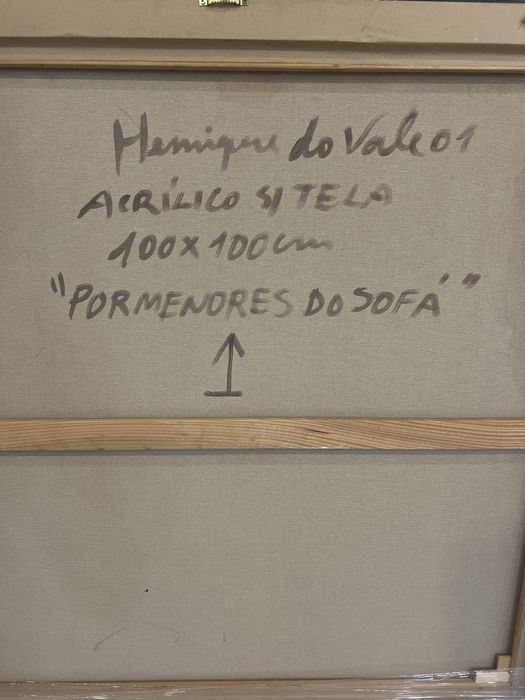 Henrique do Vale 01
ACRÍLICO S/ TELA
100x100cm
"PORMENORES DO SOFÁ"